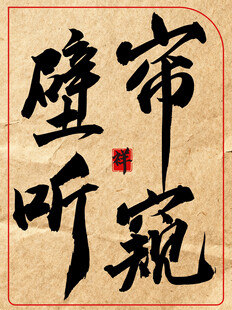 帘窥
壁听
祥